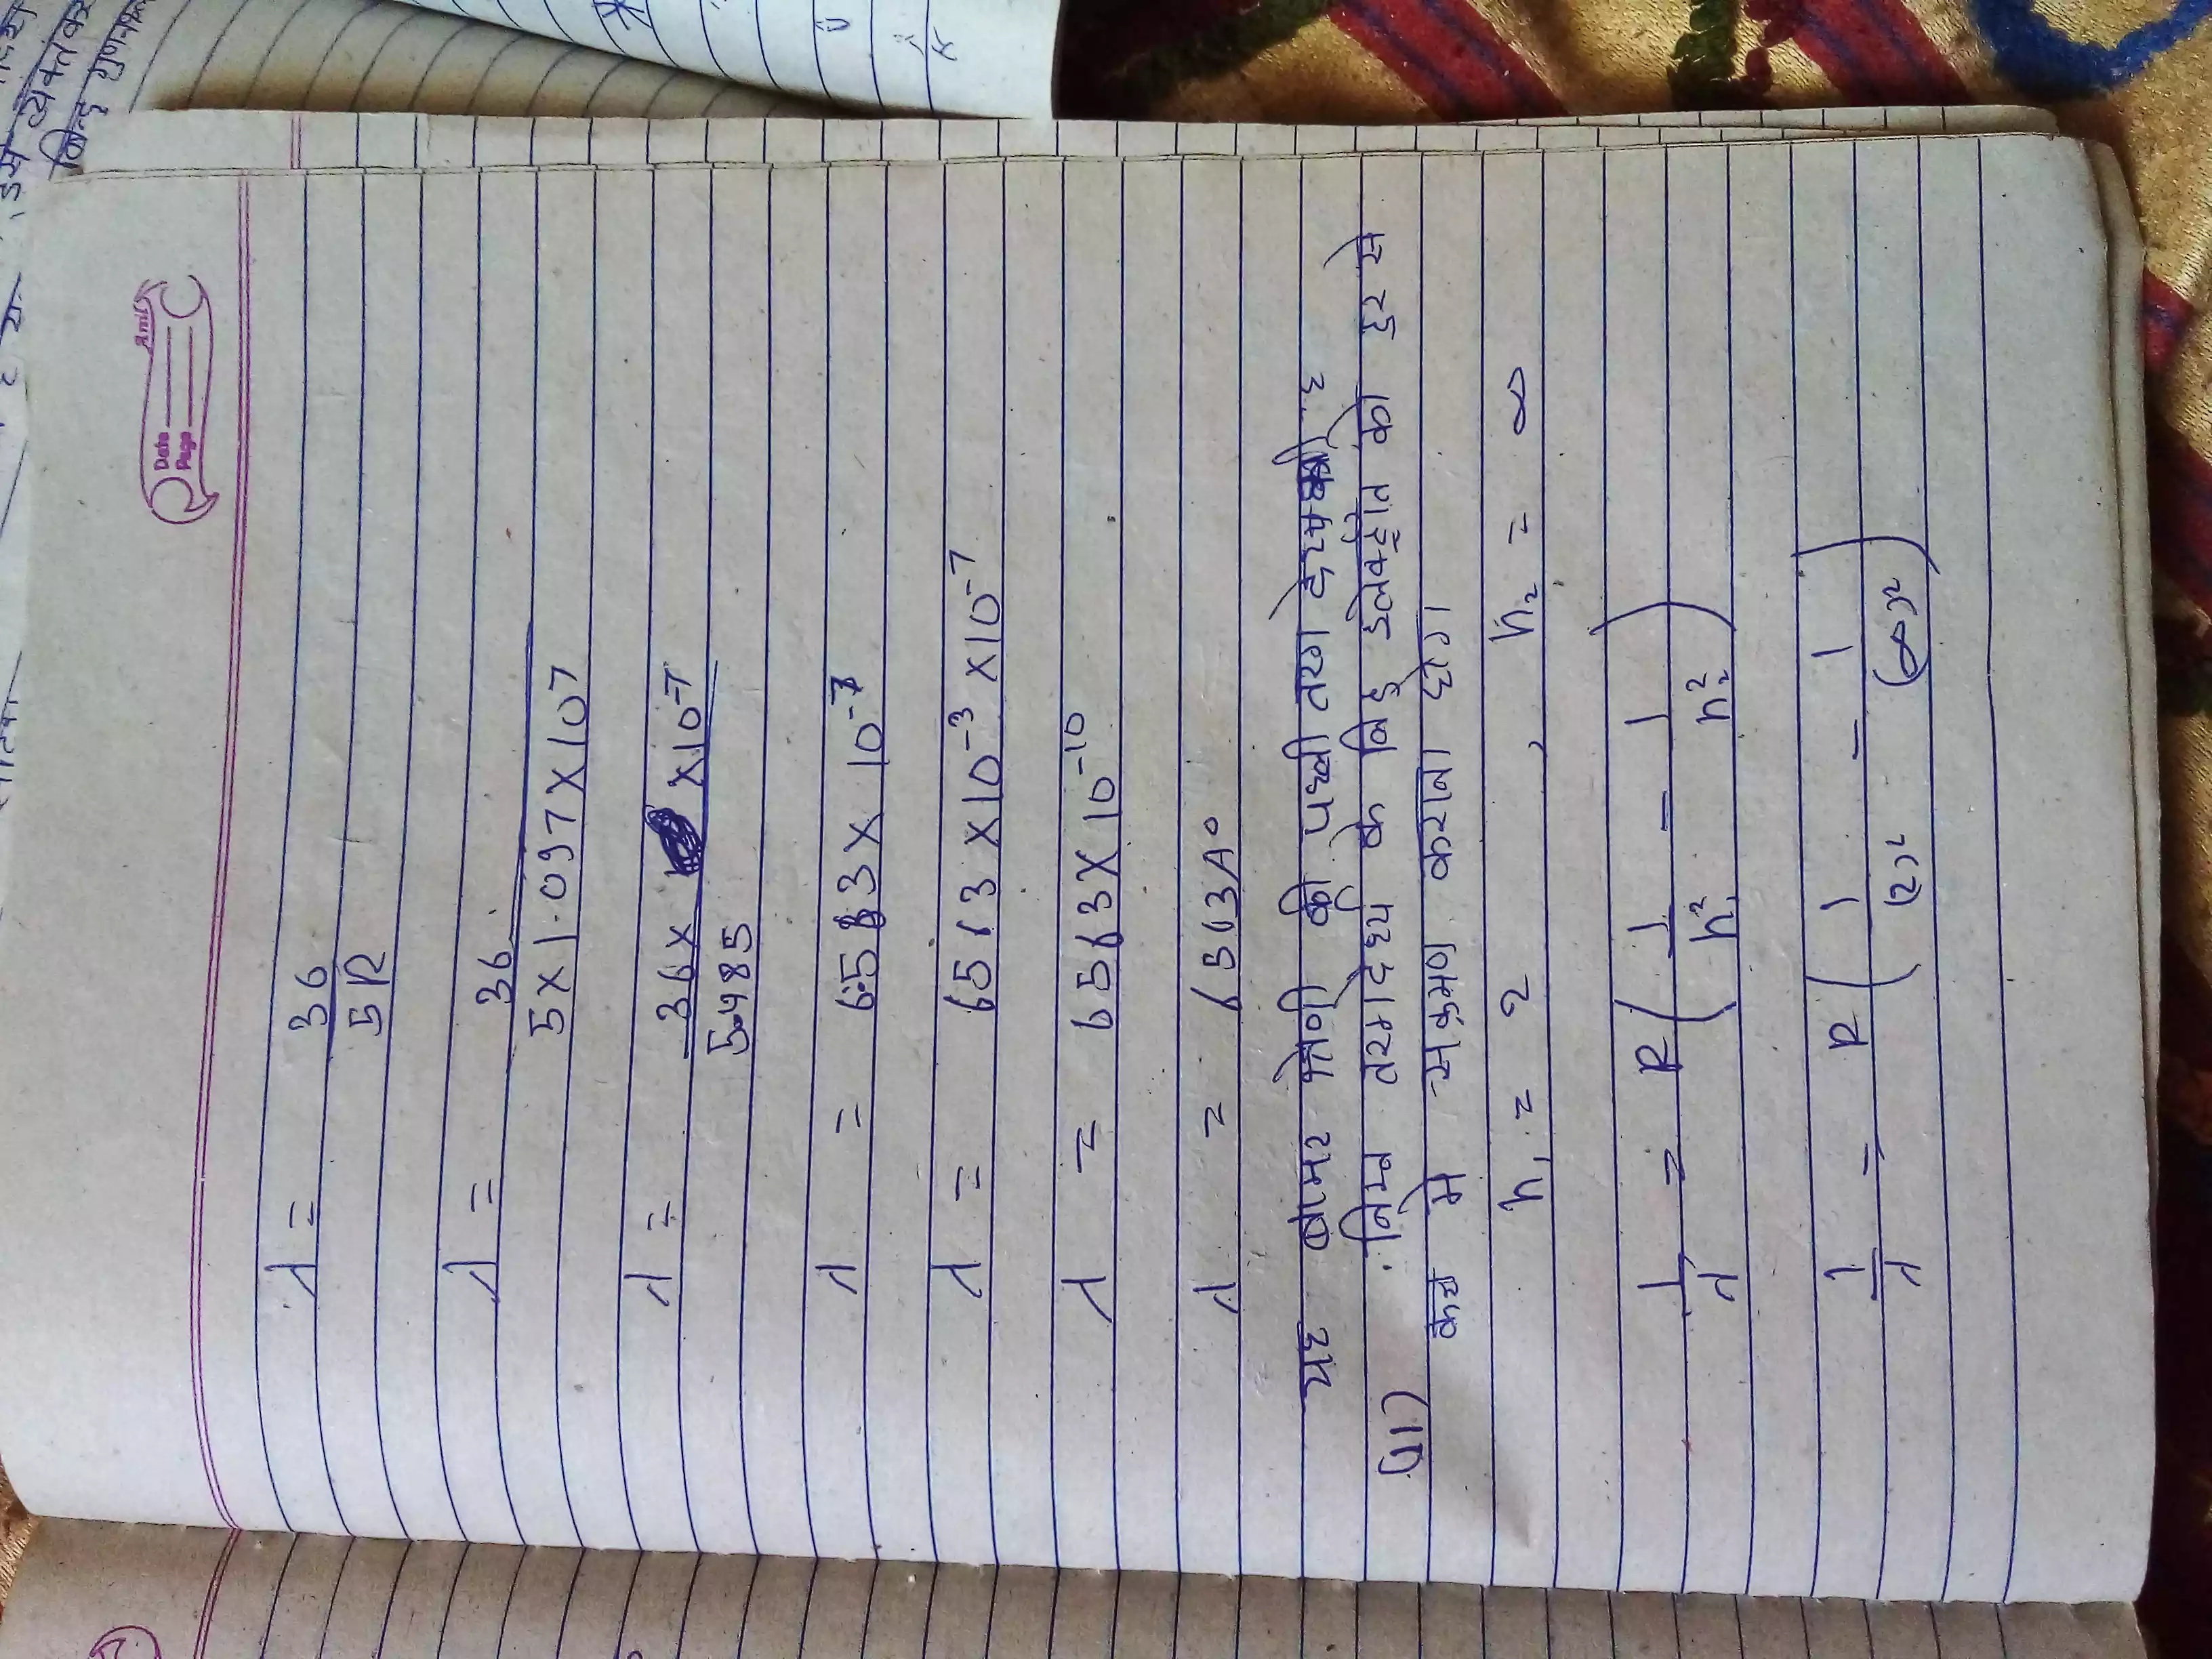 Amit
Date
Page
λ = 36
5R
λ = 36
5×1.097×10⁷
λ = 36× ×10⁻⁷
5.485
λ = 6.563× 10⁻⁷
λ = 6563 ×10⁻³ ×10⁻⁷
λ = 6563×10⁻¹⁰
λ = 6563A°
यह बामर श्रेणी की पथ्वी तरंग दैघ्य है
(11) निम्न तरंगदैर्घ्य के लिए इलेक्ट्रोन को दुर से
कक्ष मे संक्रमण कराना होगा
n₁ = 2 , n₂ = ∞
1/λ = R(1/n₁² - 1/n₂²)
1/λ = R(1/(2)² - 1/(∞)²)